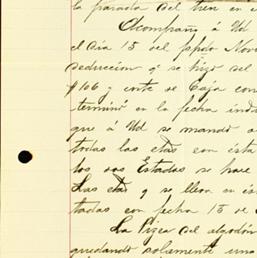 la parada del tren en e
Acompaño á Ud
el dia 15 del ppdo Nov
deducción qe se hizo del
$106 y corte de Caja con
terminó en la fecha ind
que á Ud se mando a
todas las ctas con ista
los dos Estados se hace
Las ctas qe se llevan en is
tadas con fecha 15 de
La Pizca del algodón
quedando solamente una